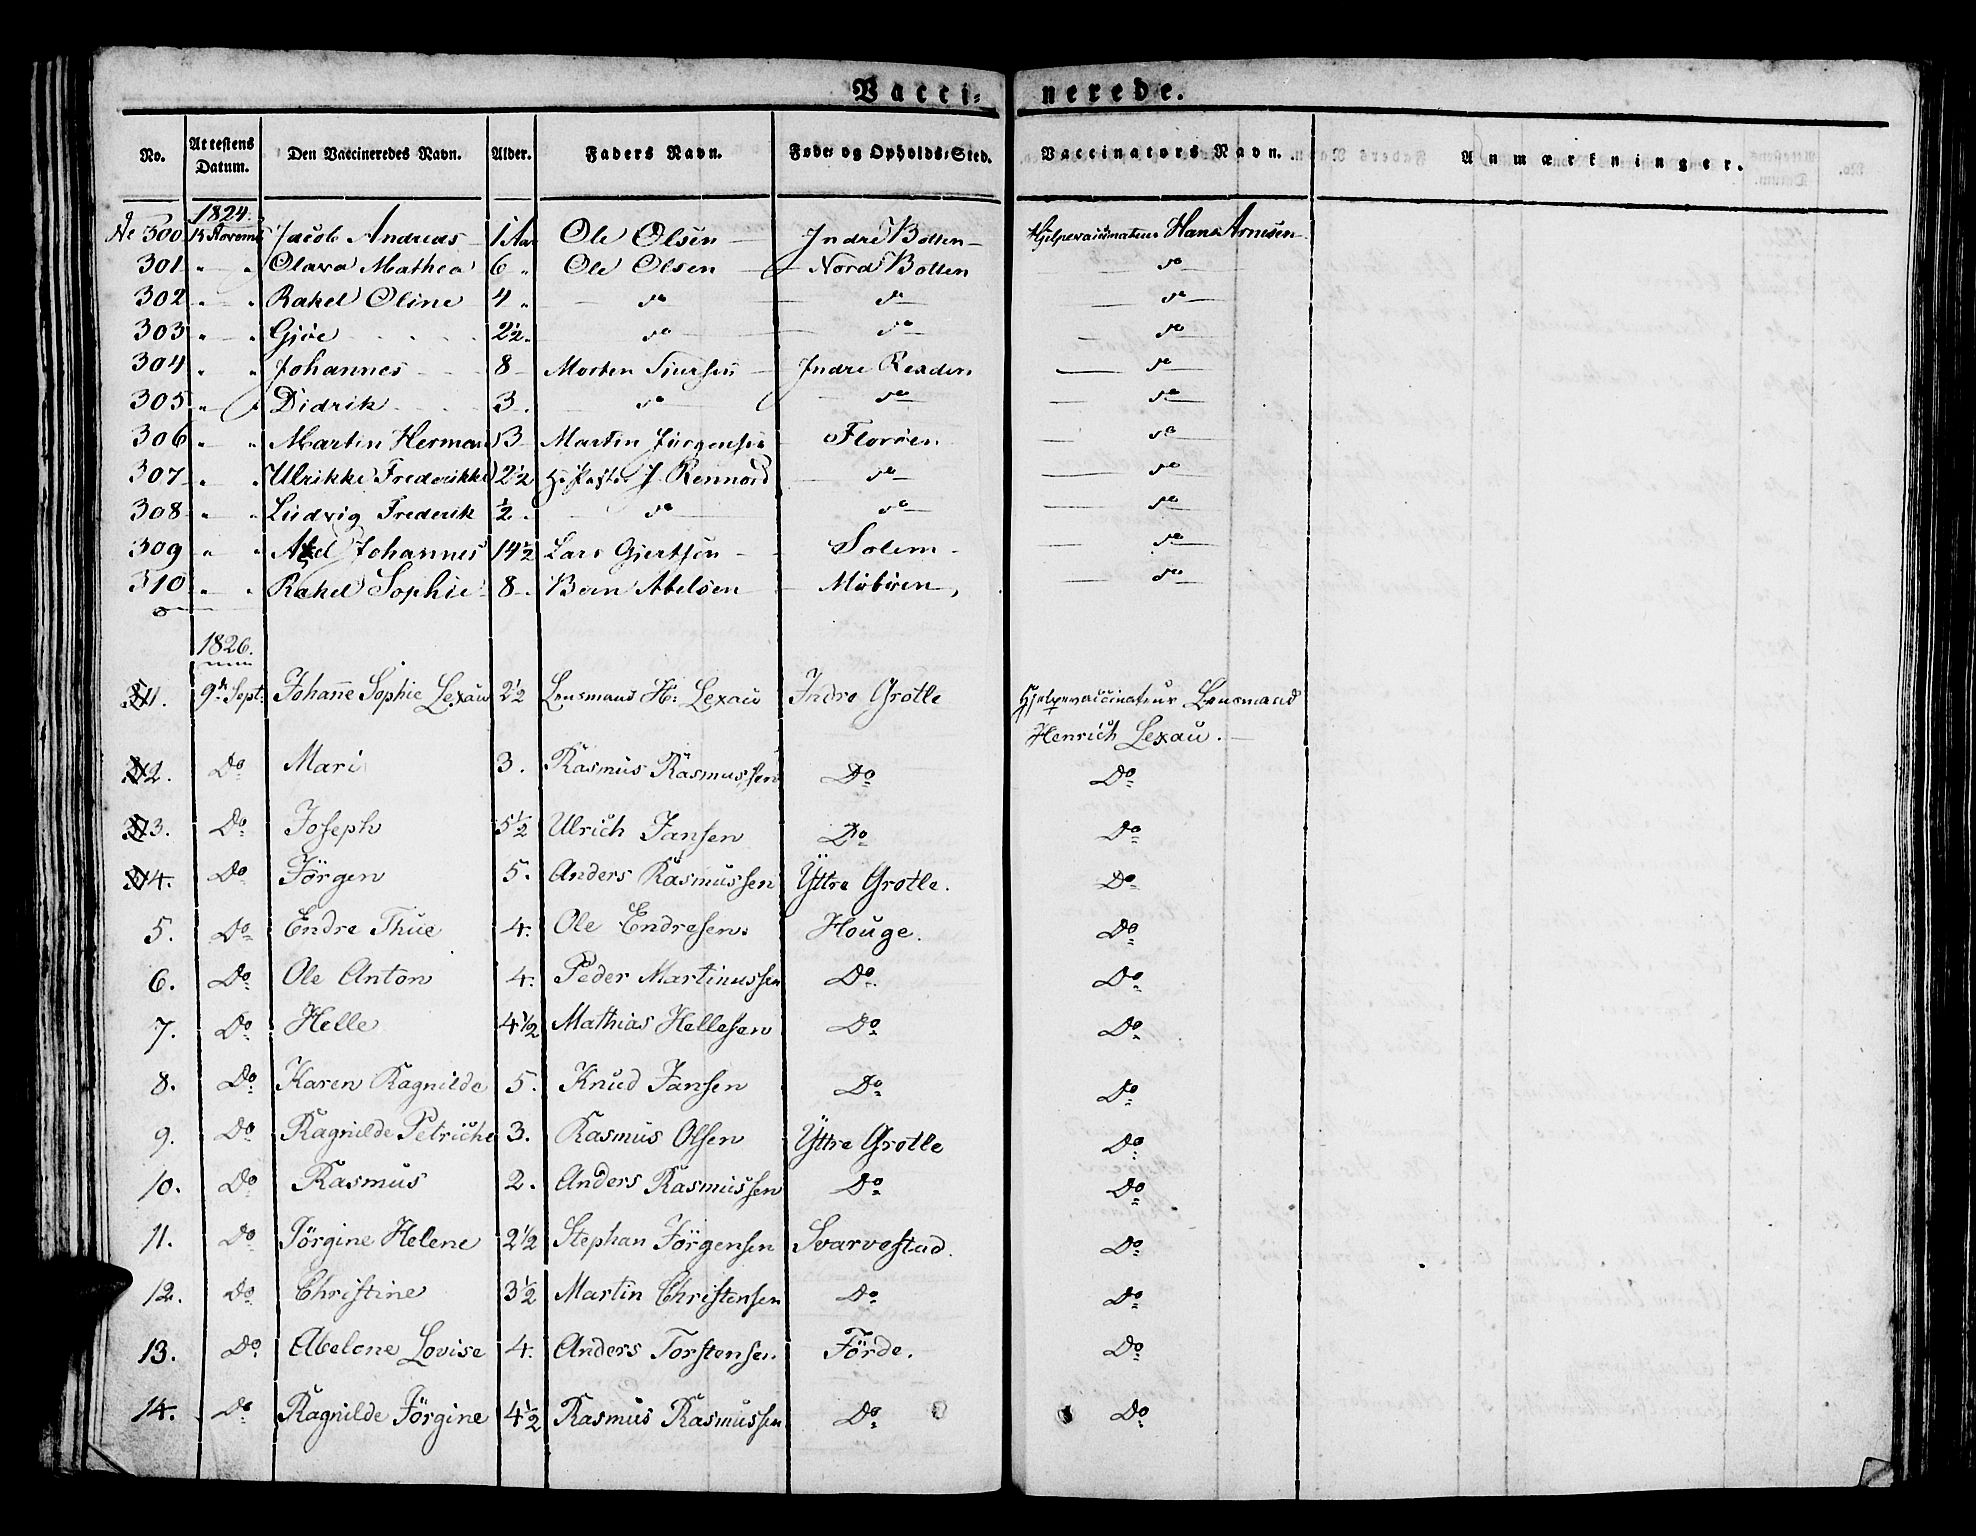 Vacci- nerede.
No. Attestens Datum. Den Vaccineredes Navn. Alder. Faders Navn. Føde- og Opholds-Sted. Vaccinators Navn. Anmærkninger.
1824.
No 300 15 Novemb Jacob Andreas 1 Aar Ole Olsen Indre Botten Hjelpevaccinateur Hans Arnesen
301 " " Olava Mathea 6 " Ole Olsen Nord Botten do
302 " " Rakel Oline 4 " do do do
303 " " Gjøe 2½ do do do
304 " " Johannes 8 Morten Siursen Indre Rexden do
305 " " Didrik 3. do do do
306 " " Martin Herman 3 Martin Jürgensen Florøen do
307 " " Ulrikke Frederikke 2½ J. Rennord do do
308 " " Ludvig Frederik ½ do do do
309 " " Johannes 14½ Lars Gjertsen Solem do
310 " " Rakel Sophie 8 Bern Abelsen do
1826.
1. 9de Sept: Johanne Sophie Lexau 2½ Lensmand H: Lexau Indre Grotle Hjelpevaccinateur Lensmand
Henrich Lexau.
2. Do Mari 3. Rasmus Rasmussen Do Do
3. Do Joseph 5½ Ulrich Jansen Do Do
4. Do Jörgen 5. Anders Rasmussen Yttre Grotle. Do
5. Do Endre Thue 4. Ole Endresen. Houge. Do
6. Do Ole Anton 4. Peder Martinussen Do Do
7. Do Helle 4½ Mathias Hellesen Do Do
8. Do Karen Ragnilde 5. Knud Jansen Do Do
9. Do Ragnilde Petriche 3. Rasmus Olsen Yttre Grotle Do
10. Do Rasmus 2. Anders Rasmussen Do Do
11. Do Jörgine Helene 2½ Stephan Jörgensen Svarvestad. Do
12. Do Christine 3½ Martin Christensen Do Do
13. Do Abelone Lovise 4. Anders Torstensen Förde. Do
14. Do Ragnilde Jörgine 4½ Rasmus Rasmussen Do Do